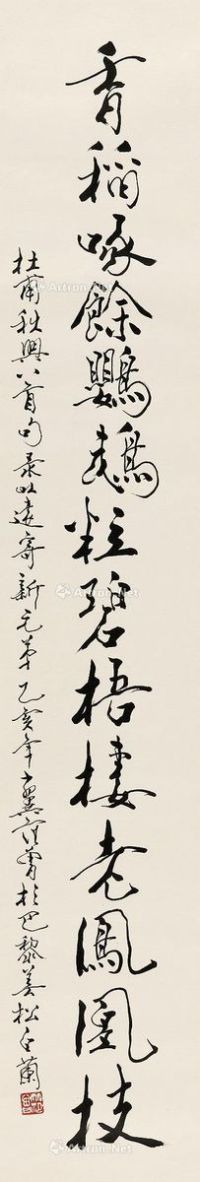 香稻啄餘鸚鵡粒碧梧棲老鳳凰枝
杜甫秋興八首句录以遠寄新元弟乙亥年十翼范曾於巴黎美松白蘭